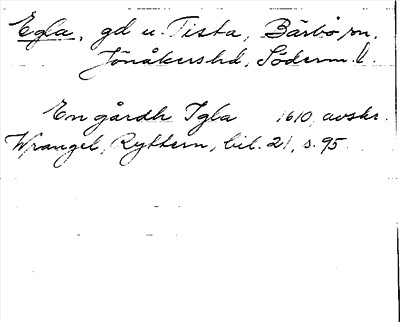 Egla, gd u. Tista, Bärbo sn,
Jönåkers hd, Söderm. l.
En gårdh Igla 1610, avskr.
Wrangel, Ryttern, bil. 21, s. 95